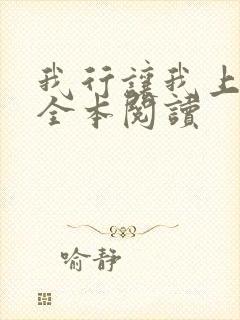 我行讓我上
全本閱讀
喻靜